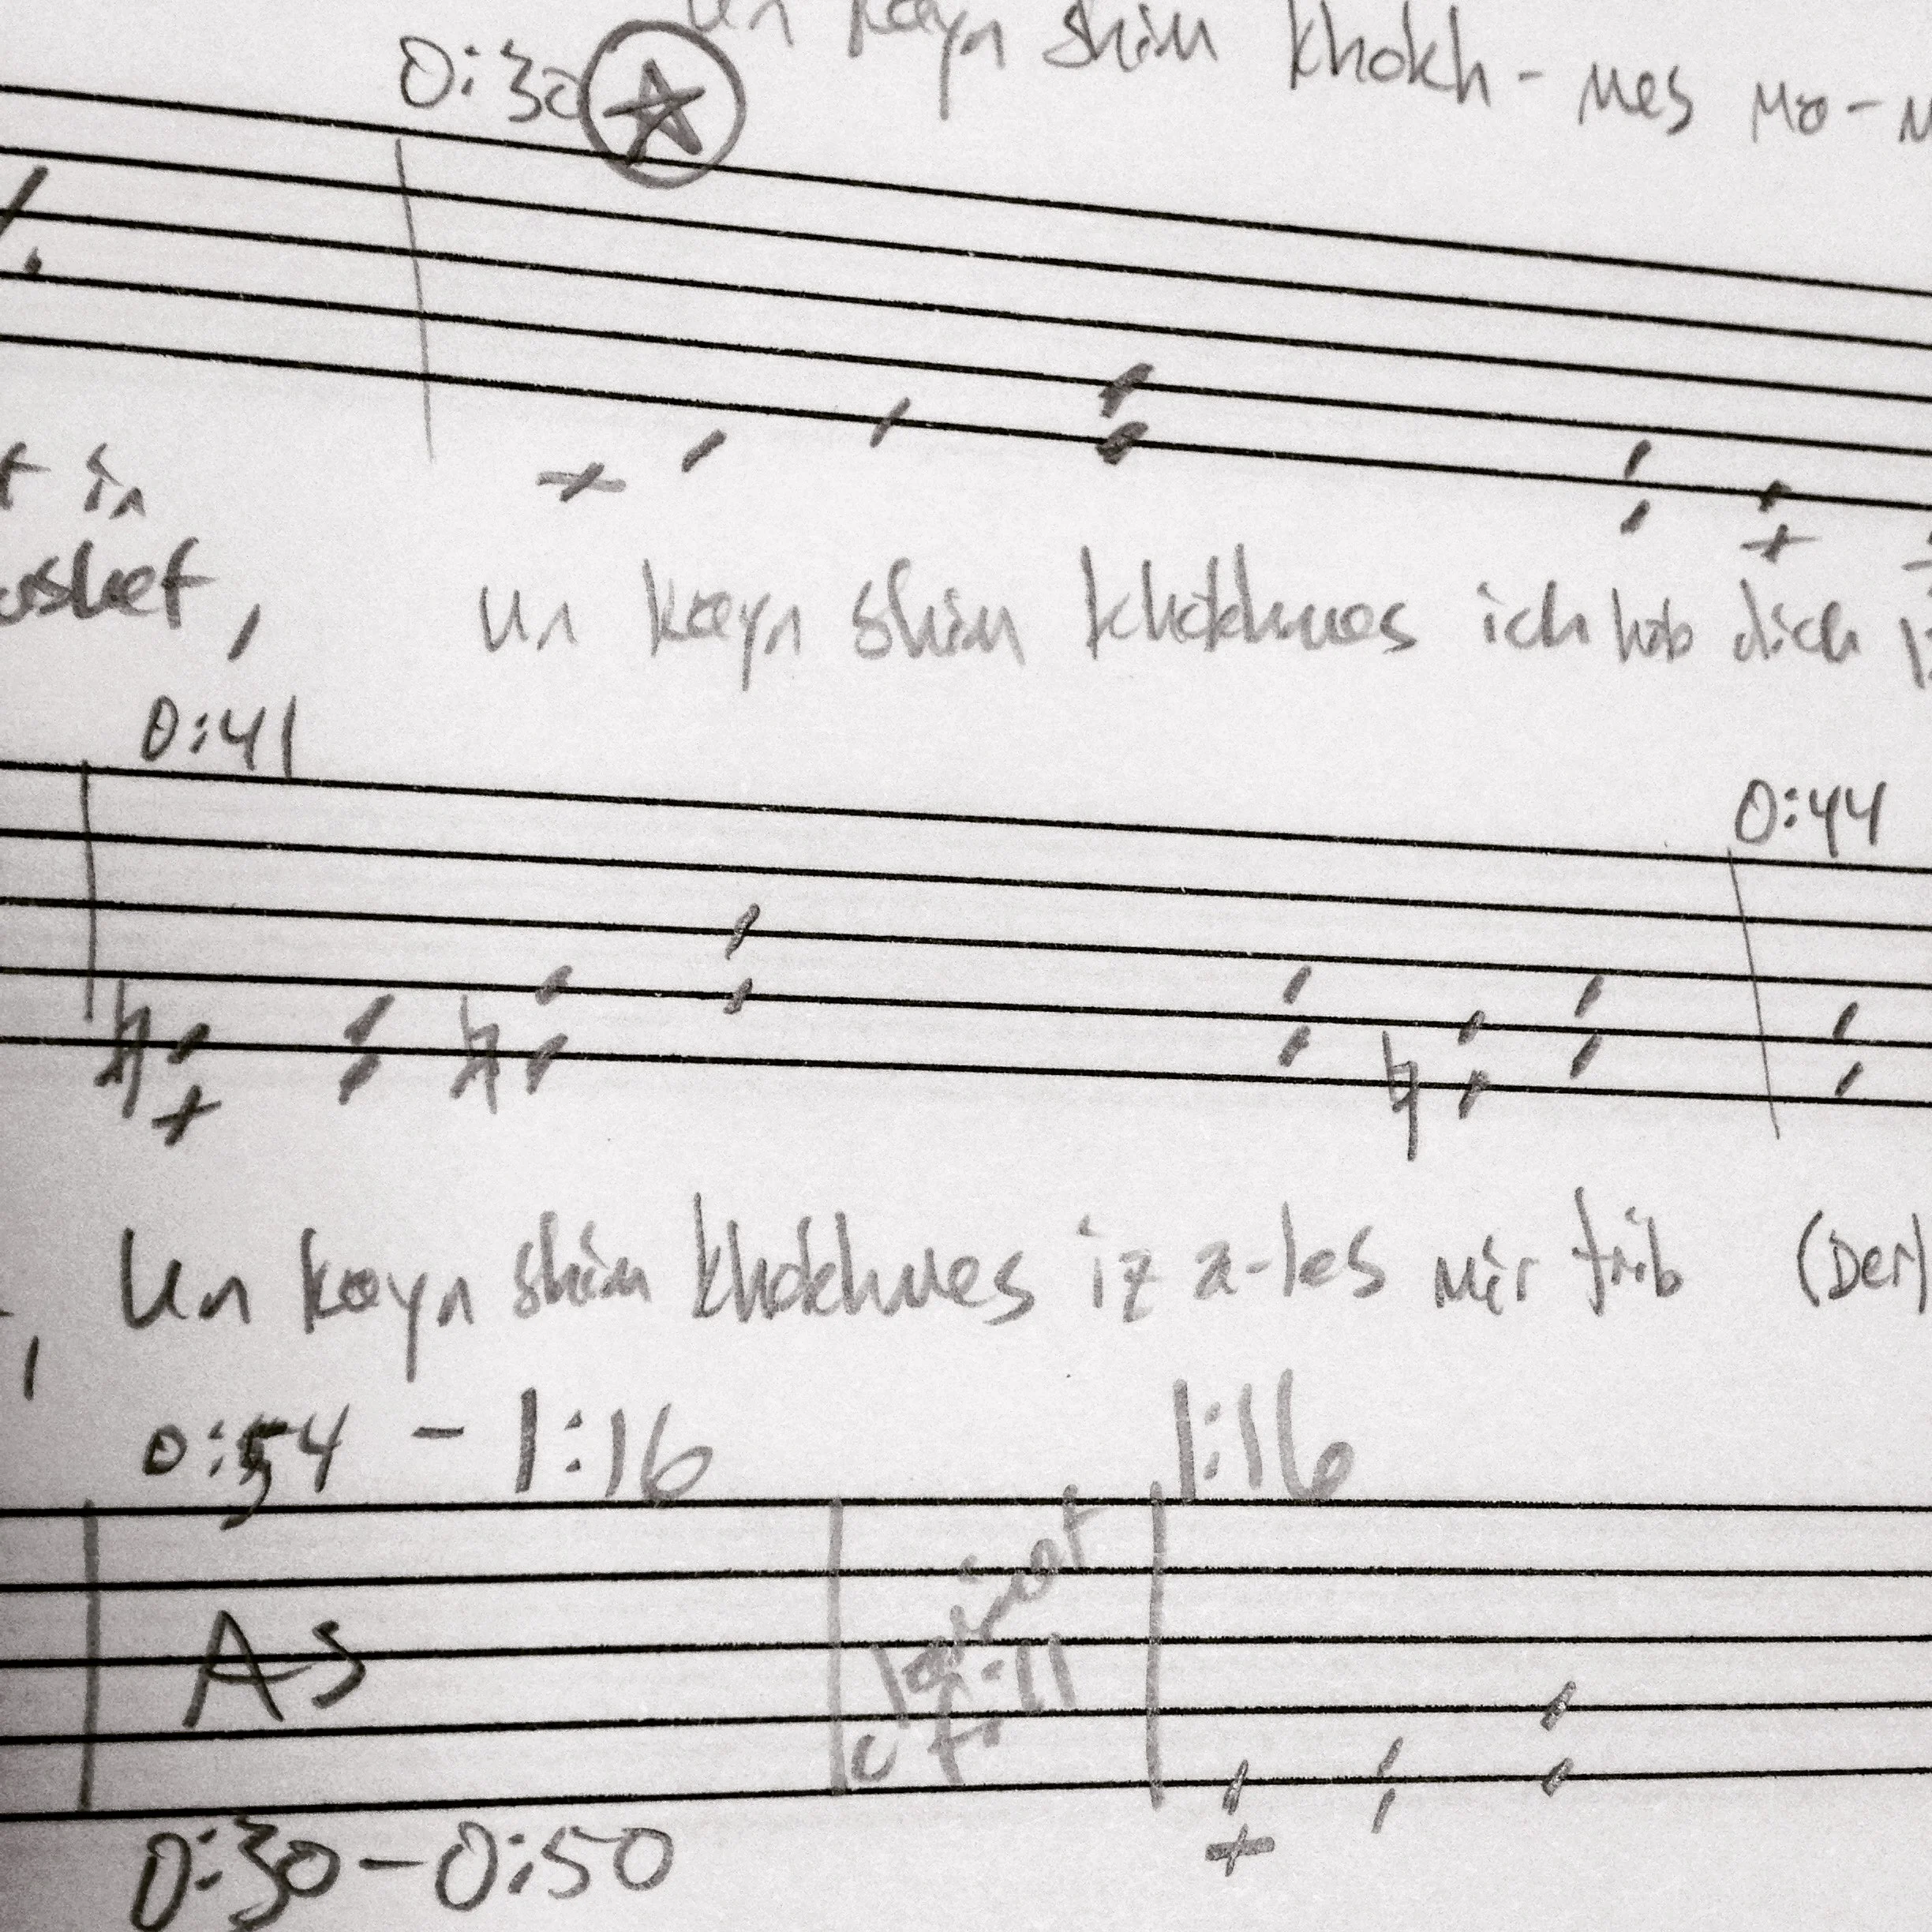 un kayn shim khokh-mes mo-
0:30
t in
un kayn shim khokhmes ich hob dich
0:41
0:44
Un kayn shim khokhmes iz a-les mir trib (Der)
0:54 - 1:16
1:16
As
clarinet
fill
0:30-0:50